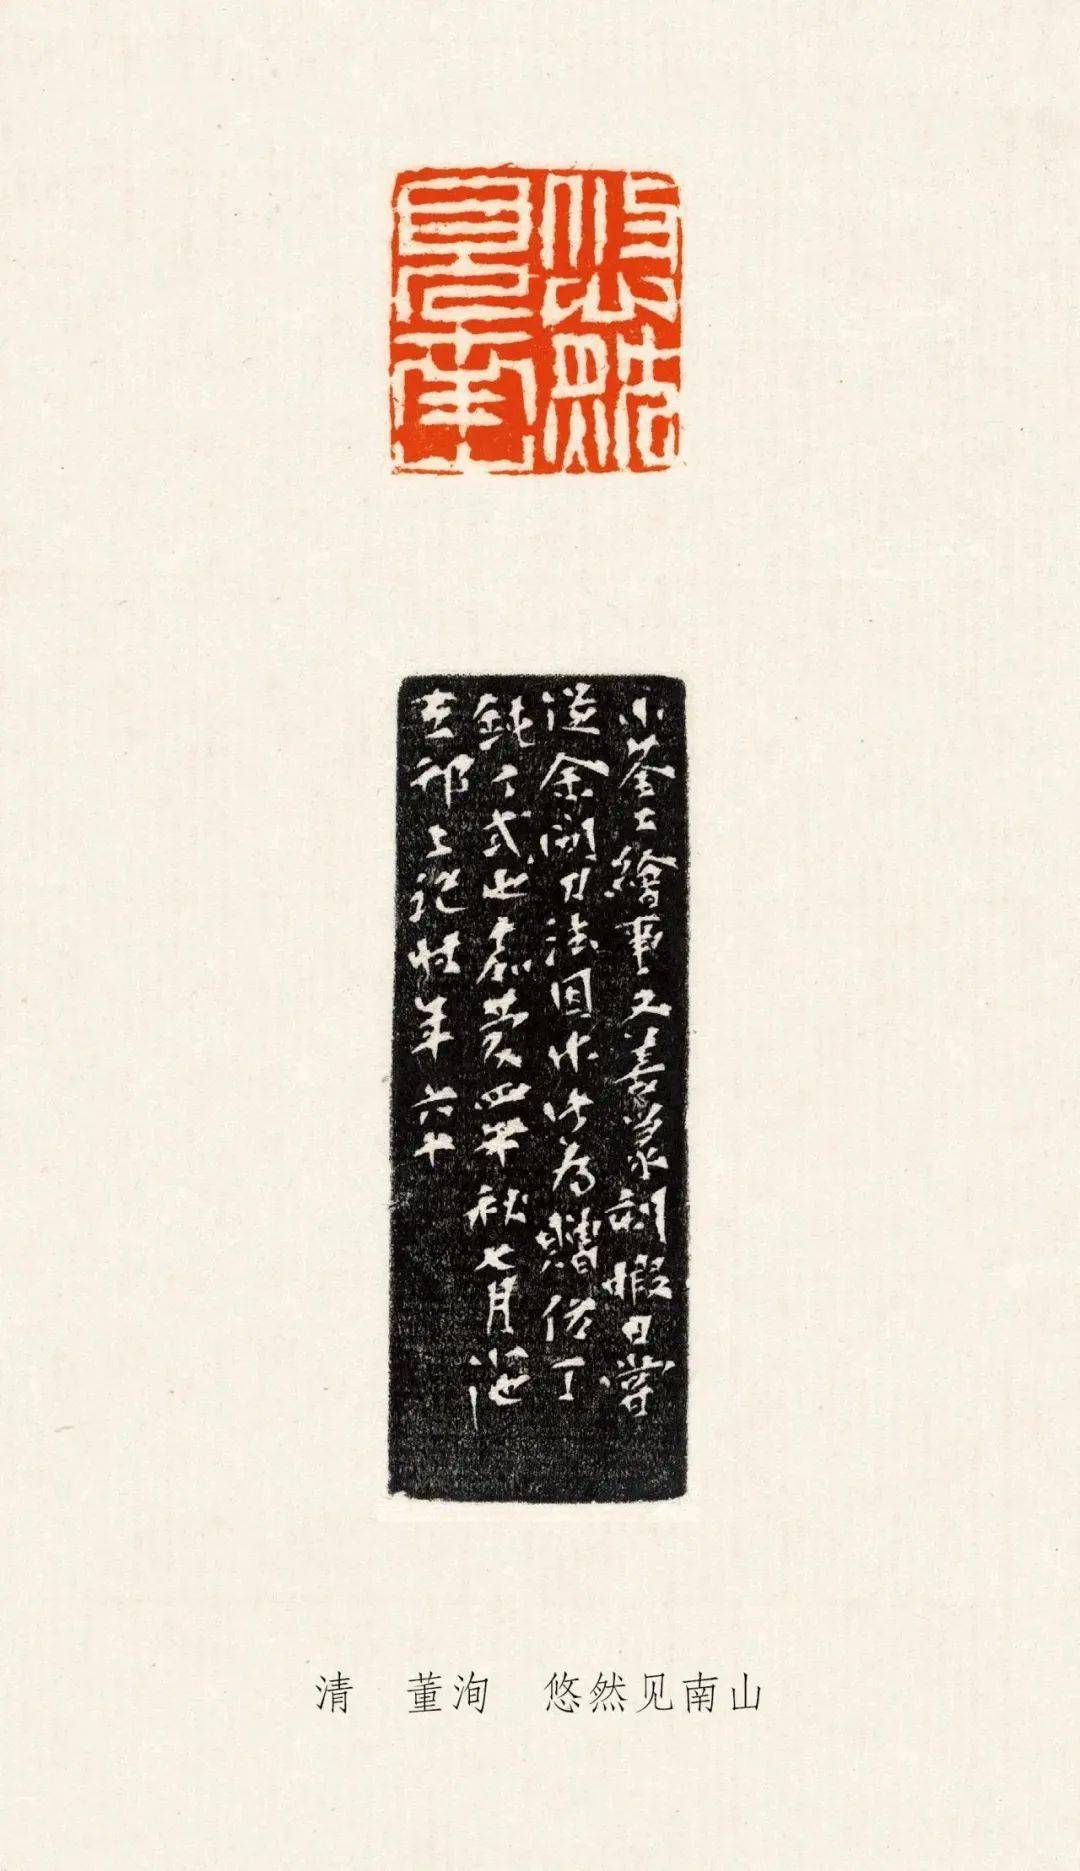 悠然
見南山
小荃工繪事又喜篆刻暇日嘗
從余問刀法因作此為贈丁
鈍丁式也嘉慶四年秋七月小池
在邗上記時年六十
清 董洵 悠然见南山